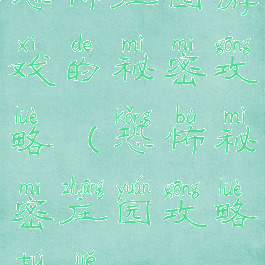 恐怖庄园游
xì de mì mì gōng
戏的秘密攻
lüè kǒng bù mì
略(恐怖秘
mì zhuāng yuán gōng lüè
密庄园攻略
tú jiě